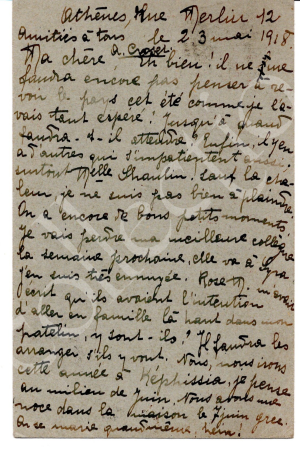 Athènes, Rue Merlin 12
Amitiés à tous, le 23 mai 1918.
A. Croset
Ma chère, Eh bien! il ne me
faudra encore pas penser à re-
voir le pays cet été comme je l'a-
vais tant espéré! Jusqu'à quand
faudra-t-il attendre? Enfin, il y en
a d'autres qui s'impatientent aussi.
surtout Melle Chaulin. Sauf la cha-
leur, je ne suis pas bien à plaindre.
On a encore de bons petits moments.
Je vais perdre ma meilleure collègue
la semaine prochaine, elle va à
j'en suis très ennuyée. Rose M. m'avait
écrit qu'ils avaient l'intention
d'aller en famille là haut dans mon
patelin, y sont-ils? Il faudra les
arranger s'ils y vont. Nous, nous irons
cette année à Képhissia, je pense
au milieu de Juin. Nous avons une
noce dans la maison le 7 juin grec.
On se marie quand même, hein!